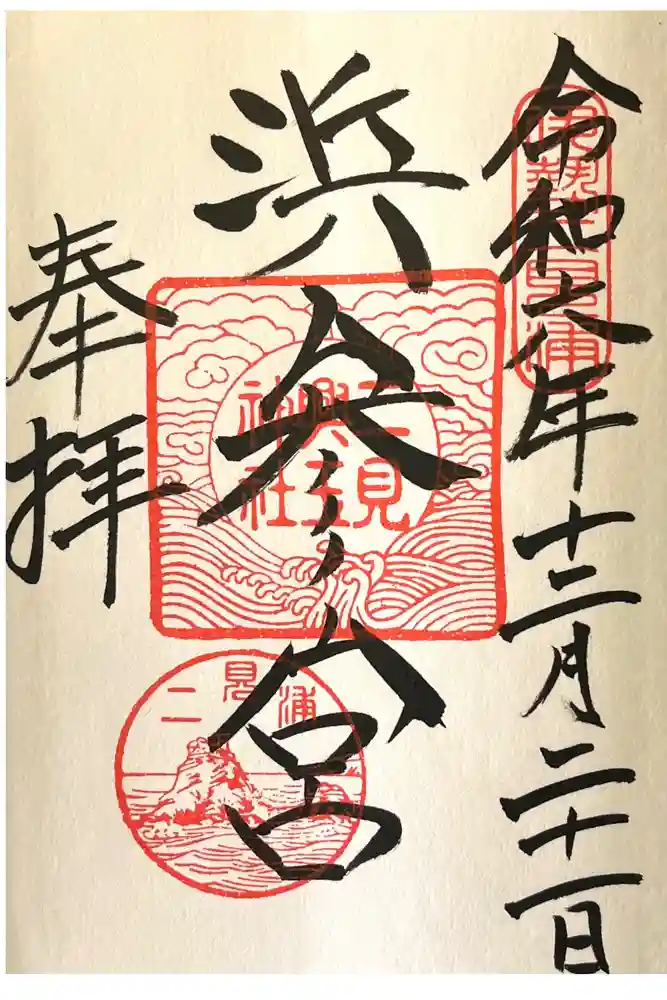 令和六年十二月二十一日
伊勢二見浦
浜参宮
二見
興玉
神社
二見浦
奉拝